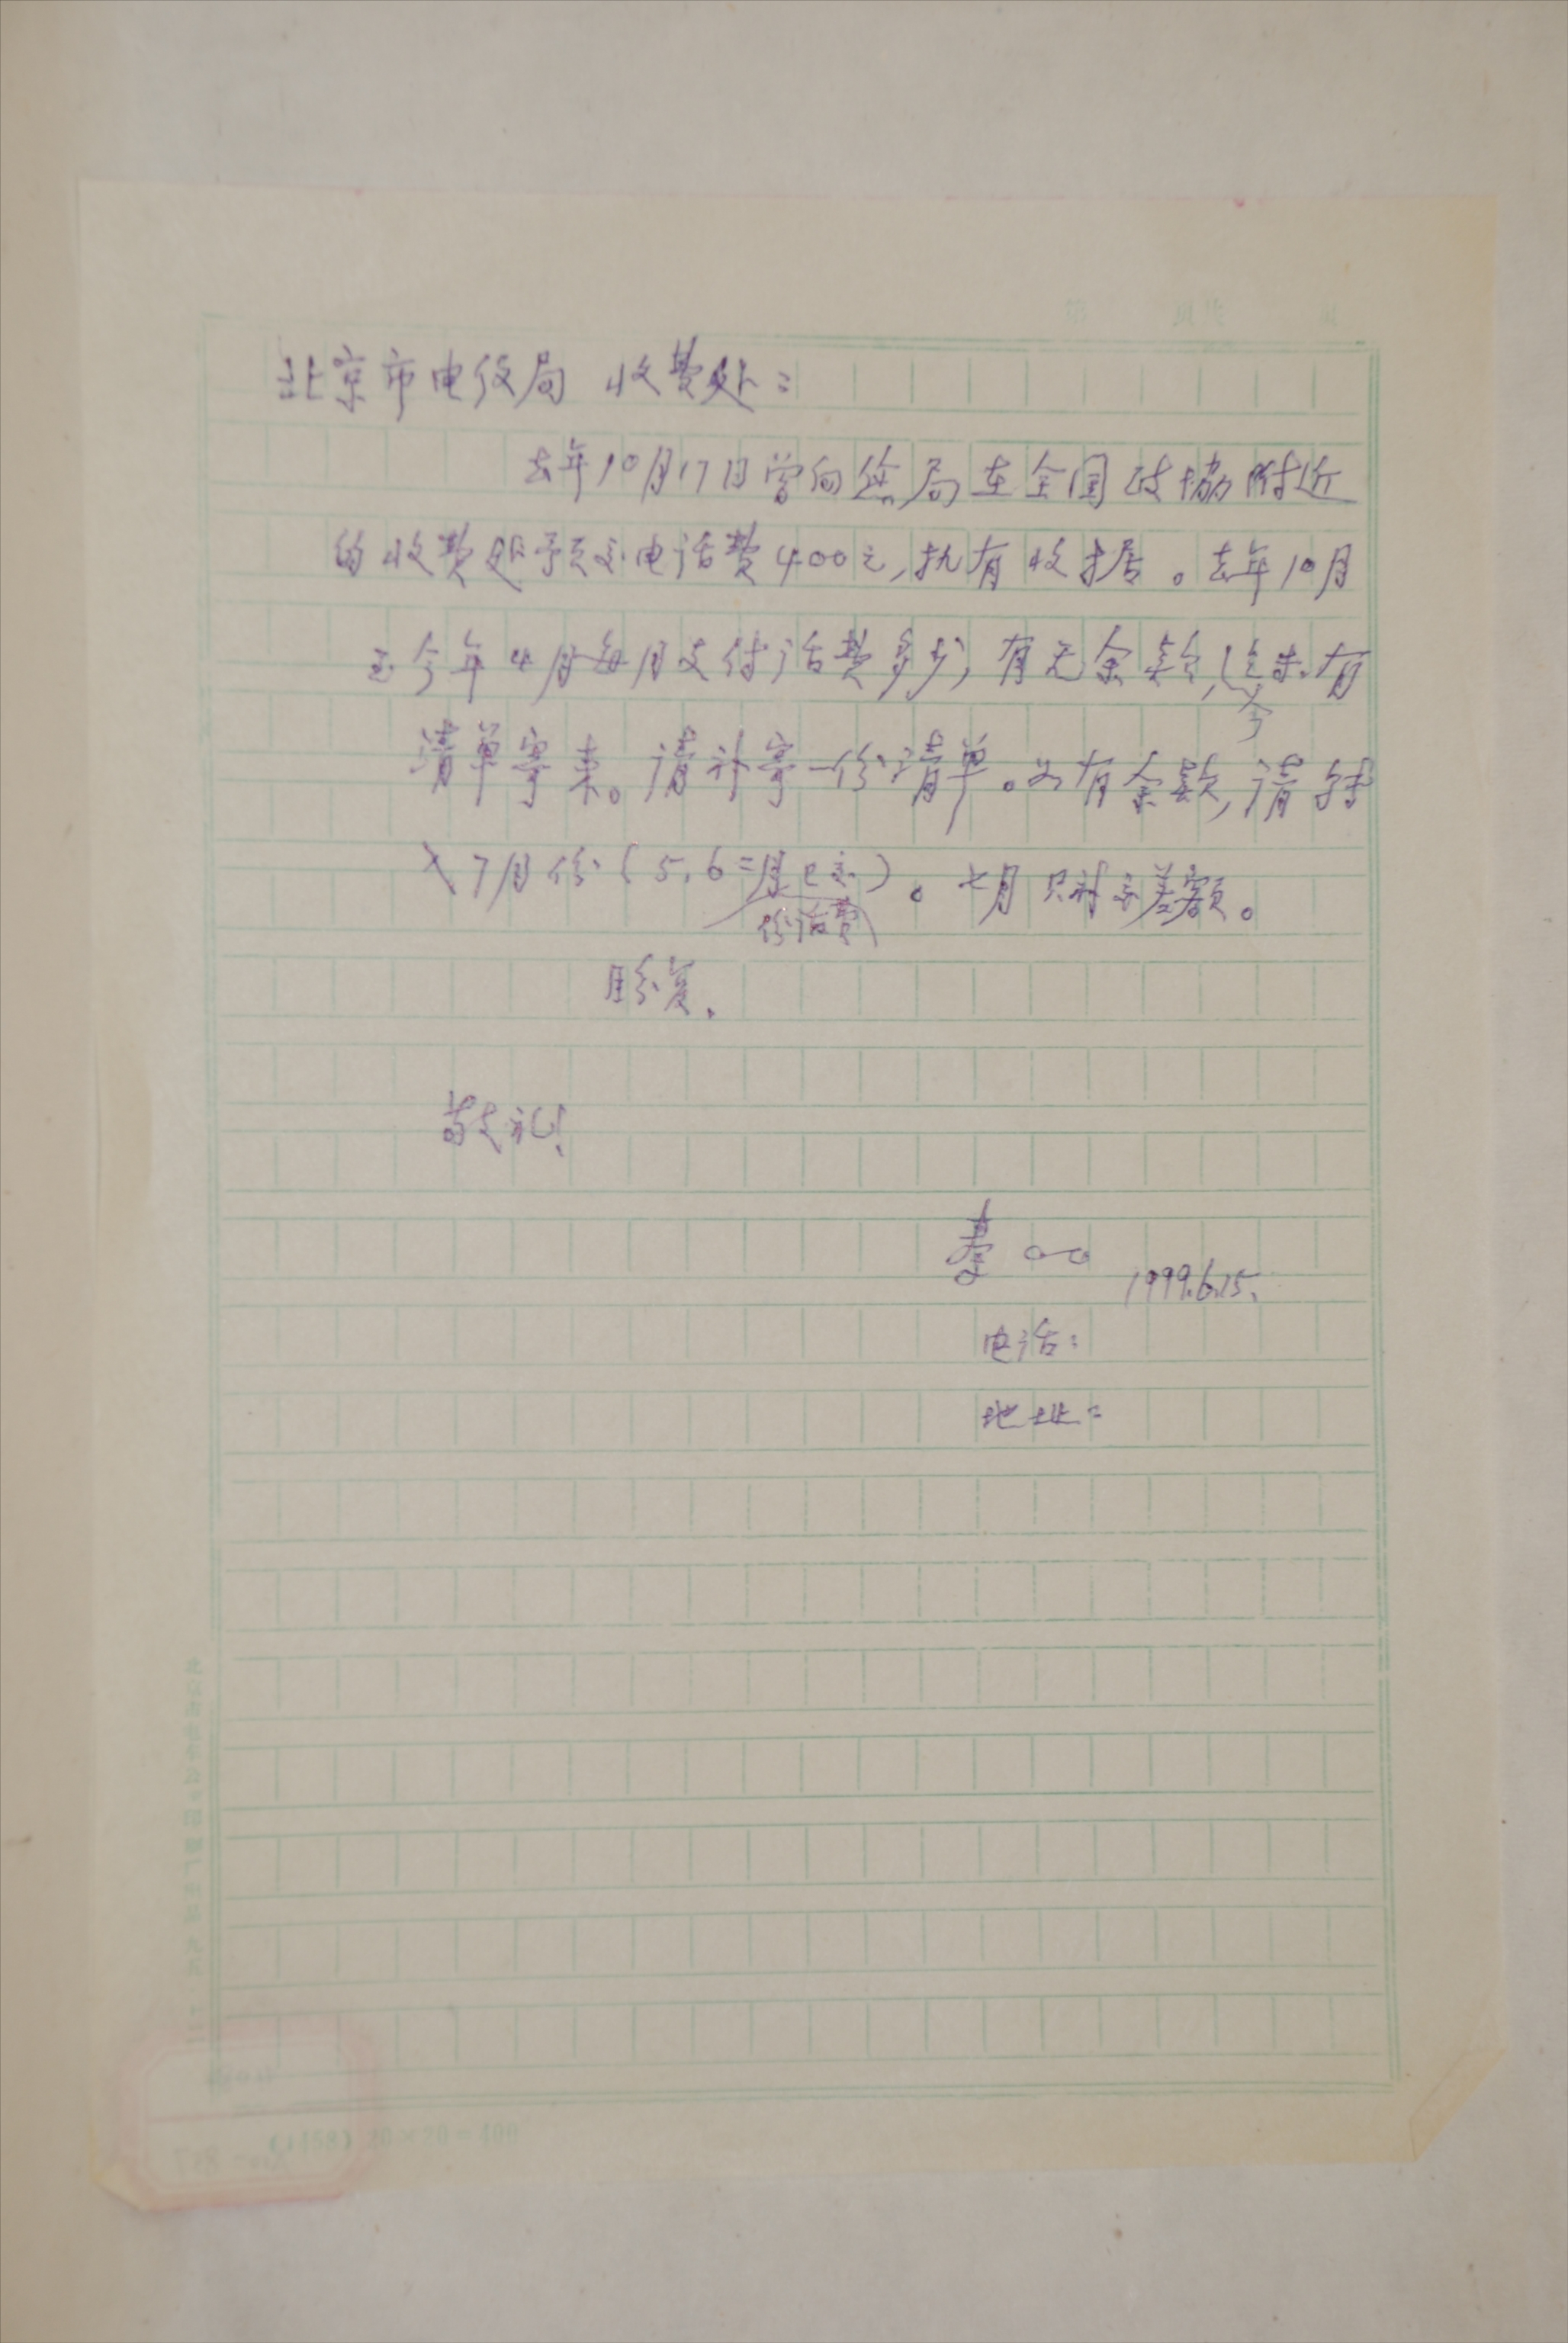 第 页 共 页
北京市电信局 收费处：
去年10月17日曾向您局在全国政协附近
的收费处预交电话费400元，执有收据。去年10月
至今年4月每月支付话费多少，有无余款，迄今未有
清单寄来。请补寄一份清单。如有余款，请转
入7月份（5.6二月份话费已交）。七月只补交差额。
盼复.
敬礼！
1999.6.15.
电话：
地址：
20×20=400